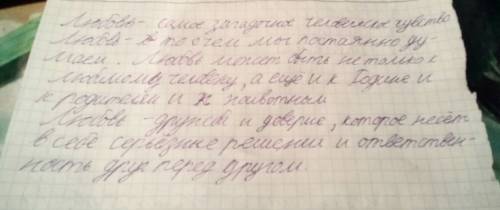 Любовь - самое загадочное человеческое чувство
Любовь - то о чем мы постоянно ду
маем. Любовь может быть не только к
любимому человеку, а ещё и к Родине и
к родителям и к животным
Любовь - дружба и доверие, которое несёт
в себе серьезные решения и ответствен-
ность друг перед другом